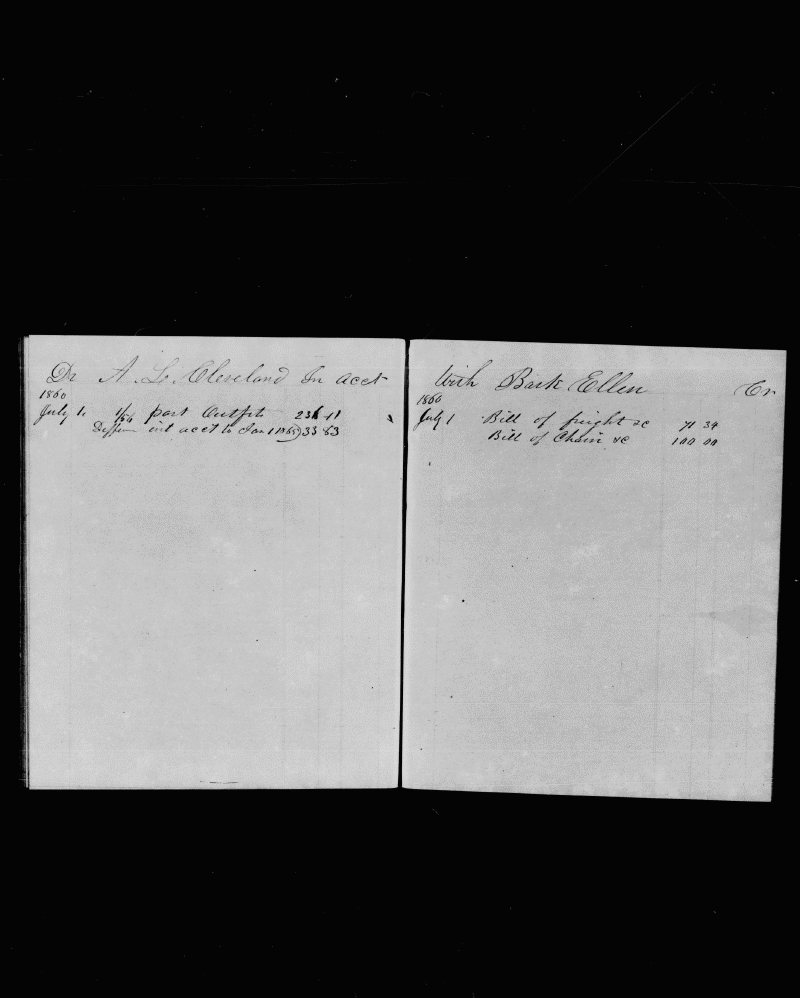 Dr A. L. Cleveland In acct
1860
July 1. 1/64 part Outfit 236 11
int acct to Jan 1 1865 33 63
With Bark Ellen Cr
1860
July 1 Bill of freight &c 71 34
Bill of Chain &c 100 00